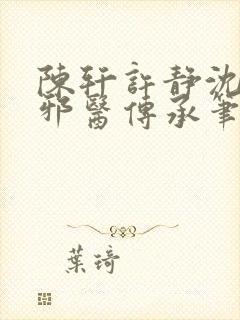 陳軒許靜沈
邪醫傳承筆
葉琦